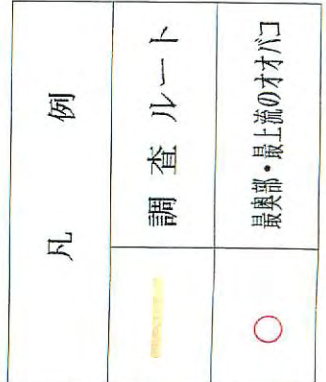 凡例
調査ルート
最奥部・最上流のオオバコ